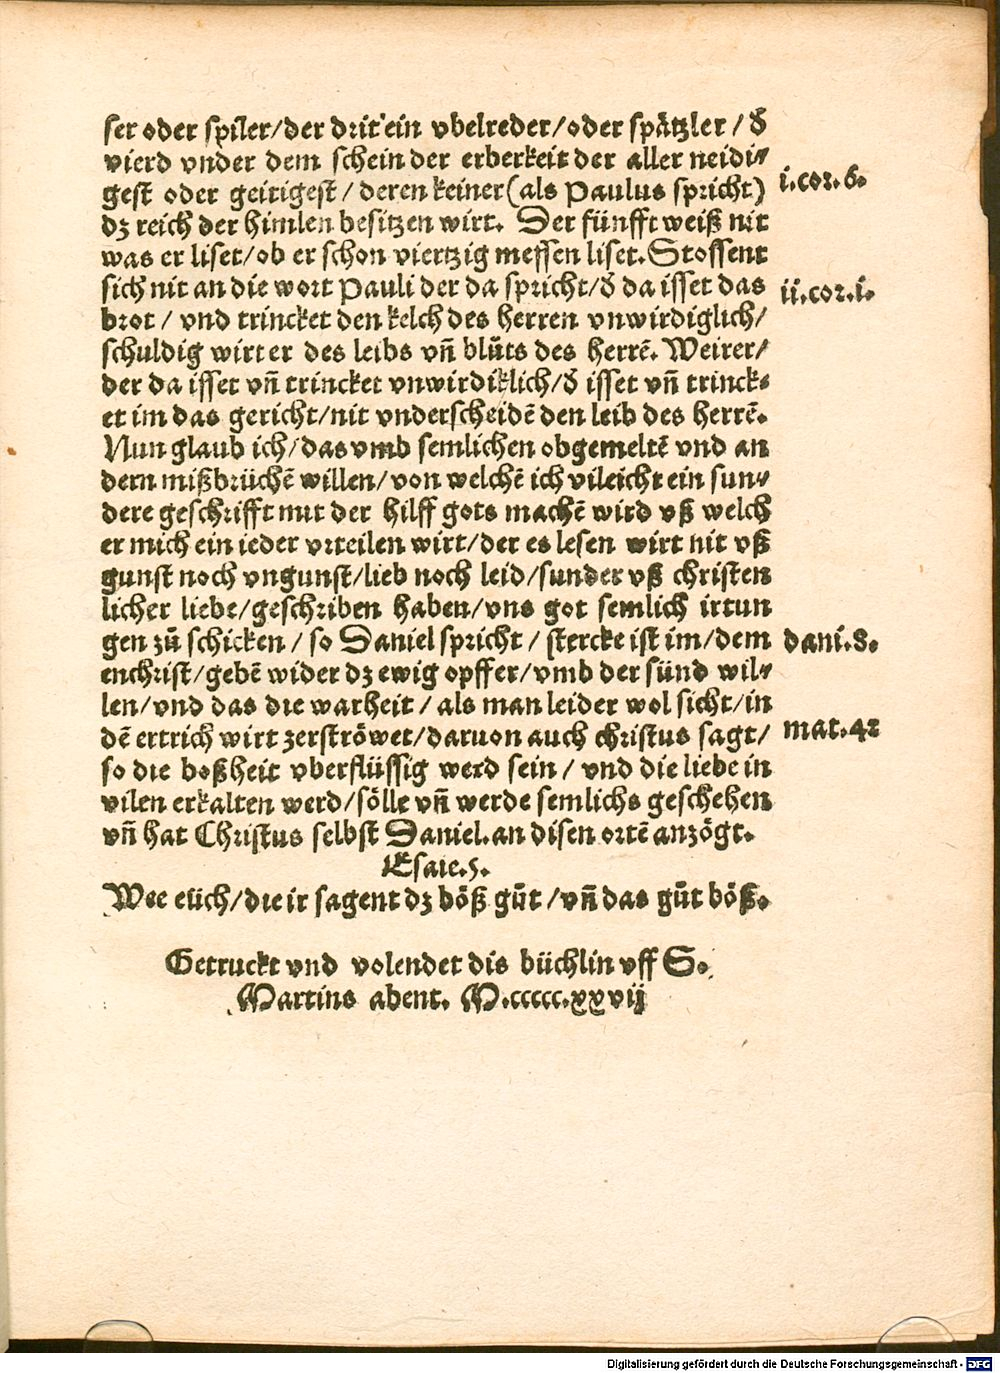 ser oder spiler/der drit ein vbelreder/oder spätzler/d̕
vierd vnder dem schein der erberkeit der aller neidi⸗
gest oder geitigest/deren keiner (als Paulus spricht)
i.cor.6.
dz reich der himlen besitzen wirt. Der fünfft weiß nit
was er liset/ob er schon viertzig messen liset. Stossent
sich nit an die wort Pauli der da spricht/d̕ da isset das
ii.cor.i.
brot/vnd trincket den kelch des herren vnwirdiglich/
schuldig wirt er des leibs vñ blůts des herrē. Weiter/
der da isset vñ trincket vnwirdiklich/d̕ isset vñ trinck⸗
et im das gericht/nit vnderscheidē den leib des herrē.
Nun glaub ich/das vmb semlichen obgemeltē vnd an
dern mißbrüchē willen/von welchē ich vileicht ein sun⸗
dere geschrifft mit der hilff gots machē wird vß welch
er mich ein ieder vrteilen wirt/der es lesen wirt nit vß
gunst noch vngunst/lieb noch leid/sunder vß christen
licher liebe/geschriben haben/vns got semlich irtun
gen zů schicken/so Daniel spricht/stercke ist im/dem
dani.8.
enchrist/gebē wider dz ewig opffer/vmb der sünd wil⸗
len/vnd das die warheit/als man leider wol sicht/in
dē ertrich wirt zerströwet/daruon auch christus sagt/
mat.42
so die boßheit vberflüssig werd sein/vnd die liebe in
vilen erkalten werd/sölle vñ werde semlichs geschehen
vñ hat Christus selbst Daniel.an disen ortē anzögt.
Esaie.5.
Wee eüch/die ir sagent dz böß gůt/vñ das gůt böß.
Getruckt vnd volendet dis büchlin vff S.
Martins abent. M.ccccc.xxvij
Digitalisierung gefördert durch die Deutsche Forschungsgemeinschaft - DFG